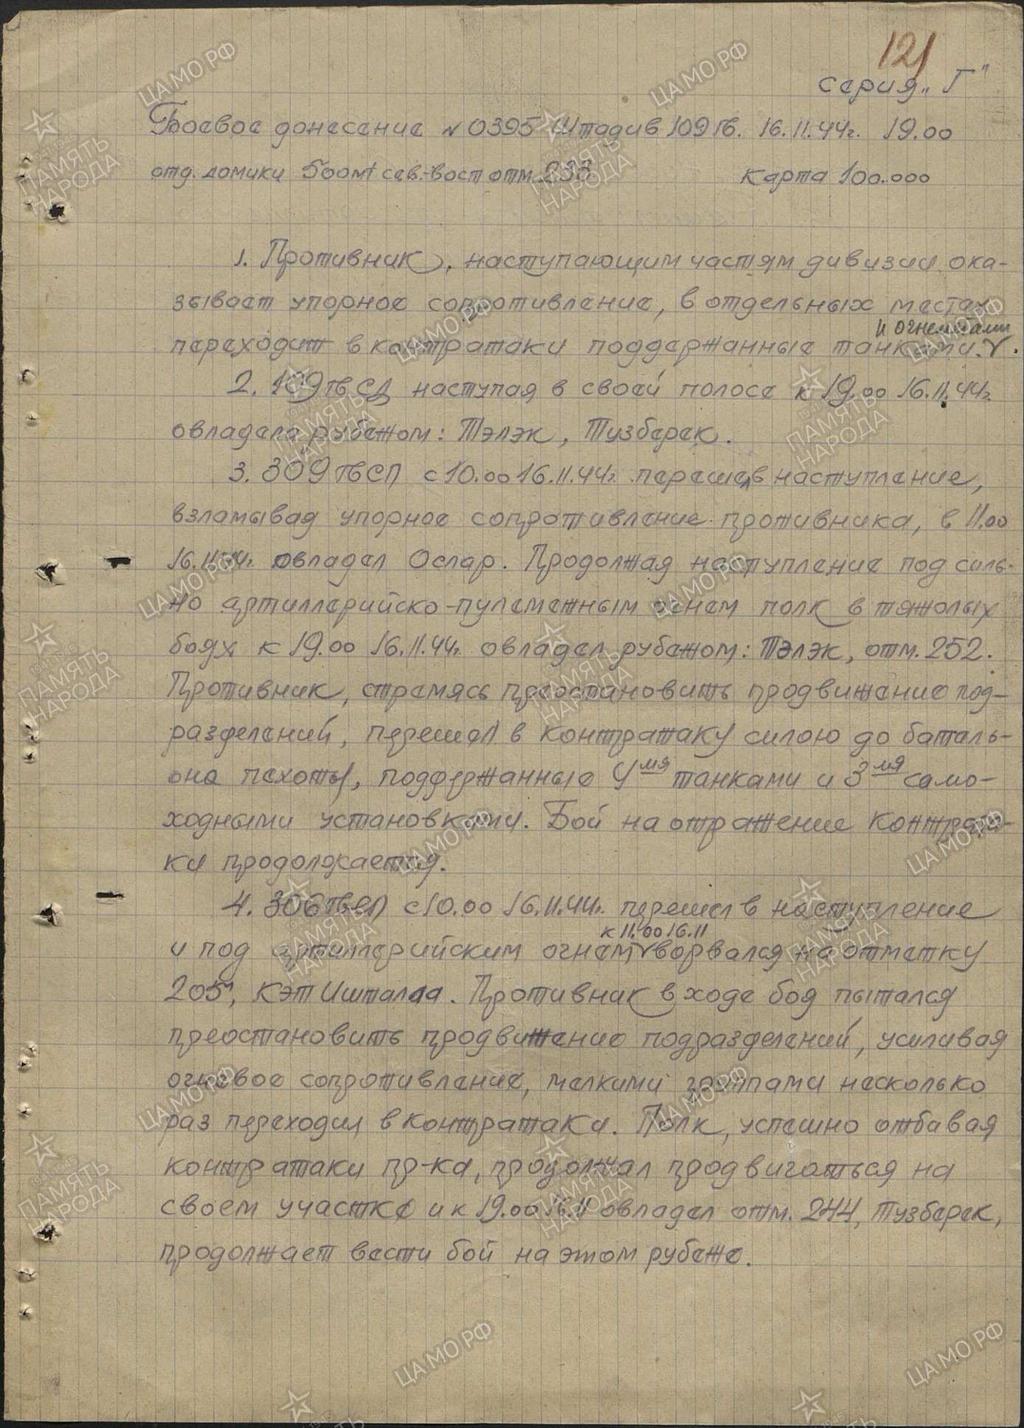 121
серия „Г"
Боевое донесение №0395 Штадив 109 Гв. 16.11.44г. 19.00
отд. домики 500 мт сев.-вост отм. 233 карта 100.000
1. Противник, наступающим частям дивизии ока-
зывает упорное сопротивление, в отдельных местах
и огнеметами
переходит в контратаки поддержанные танками.
2. 109 ГвСД наступая в своей полосе к 19.00 16.11.44г.
овладела рубежом: Тэлэк, Тузберек.
3. 309 ГвСП с 10.00 16.11.44г. перешел в наступление,
взламывая упорное сопротивление противника, в 11.00
16.11.44г. овладел Ослар. Продолжая наступление под силь-
но артиллерийско-пулеметным огнем полк в тяжолых
боях к 19.00 16.11.44г. овладел рубежом: Тэлэк, отм. 252.
Противник, стремясь преостановить продвижение под-
разделений, перешел в контратаку силою до баталь-
она пехоты, поддержанные 4мя танками и 3мя само-
ходными установками. Бой на отражение контрата-
ки продолжается.
4. 306 ГвСП с 10.00 16.11.44г. перешел в наступление
к 11.00 16.11
и под артиллерийским огнем ворвался на отметку
205, Кэт Иштала. Противник в ходе боя пытался
преостановить продвижение подразделений, усиливая
огневое сопротивление, мелкими группами несколько
раз переходил в контратаки. Полк, успешно отбавая
контратаки пр-ка, продолжал продвигаться на
своем участке и к 19.00 16.11 овладел отм. 244, Тузберек,
продолжает вести бой на этом рубеже.
ЦАМО РФ
ПАМЯТЬ
НАРОДА